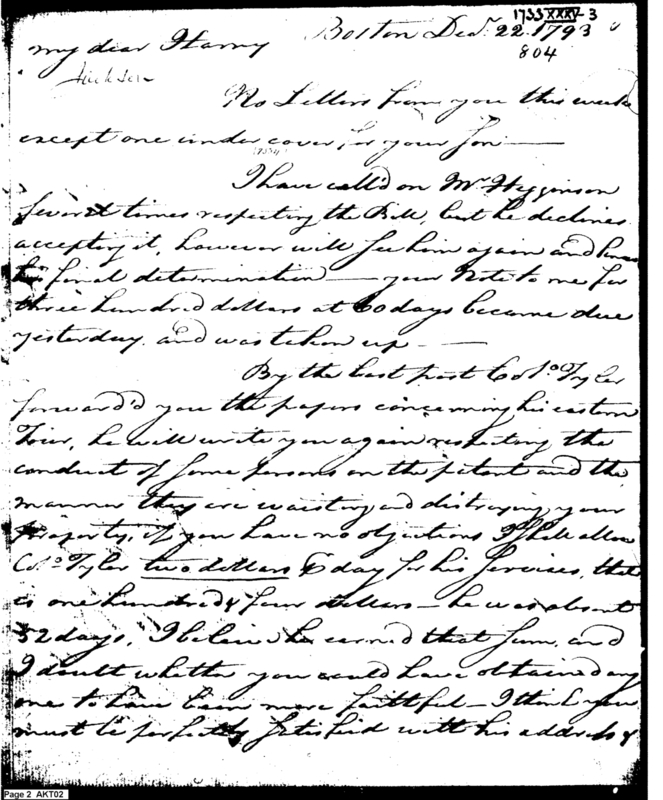 1733 XXXV-3
Boston Decr. 22. 1793
804
my dear Harry
Jackson
No Letters from you this week
except one under cover for your son —
I have call'd on Mr Higginson
several times respecting the Bill, but he declines
accepting it, however will see him again and know
his final determination — your Note to me for
three hundred dollars at 60 days became due
yesterday, and was taken up —
By the last post Colo. Tyler
forward'd you the papers concerning his eastern
Tour, he will write you again respecting the
conduct of some persons on the patent and the
manner they are waisting and distroying your
property, if you have no objections I shall allow
Colo. Tyler two dollars ⅌ day for his services, that
is one hundred & four dollars — he was absent
52 days, I believe he earned that sum, and
I doubt whether you would have obtained any
one to have been more faithful — I think you
must be perfectly satisfied with his address &
Page 2 AKT02